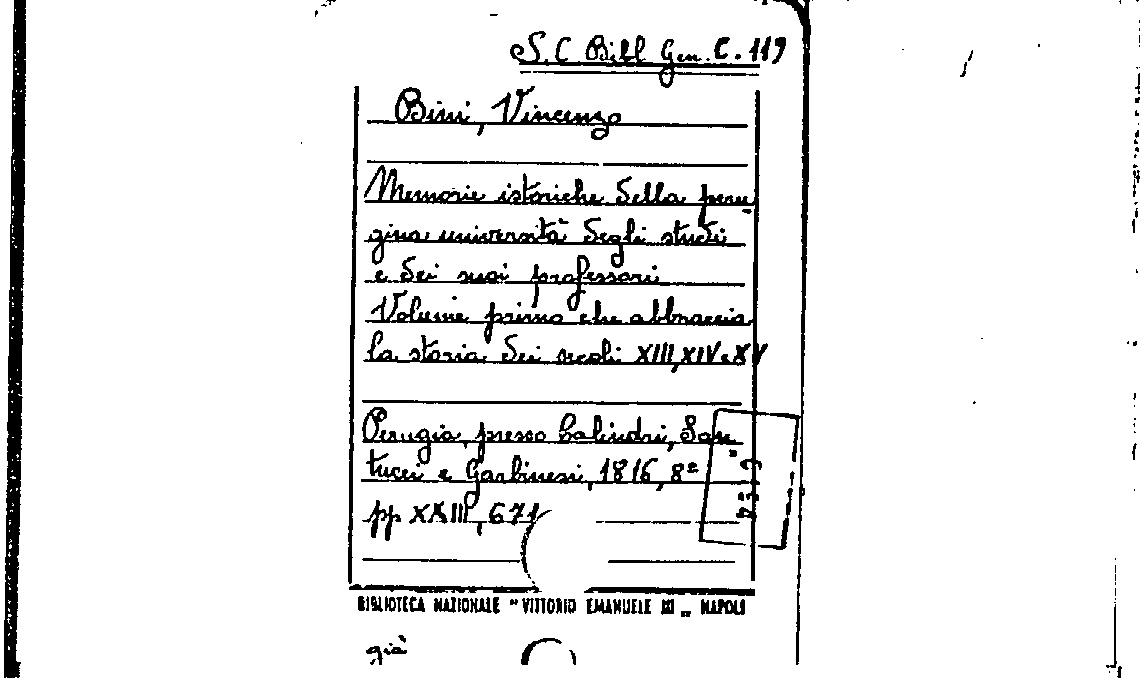 S.C Bibl Gen. C. 119
Bini, Vincenzo
Memorie istoriche della peru-
gina università degli studi
e dei suoi professori
Volume primo che abbraccia
la storia dei secoli XIII, XIV e XV
Perugia, presso Calindri, San-
tucci e Garbinesi, 1816, 8º
pp XXIII, 671
BIBLIOTECA NAZIONALE "VITTORIO EMANUELE III" NAPOLI
già